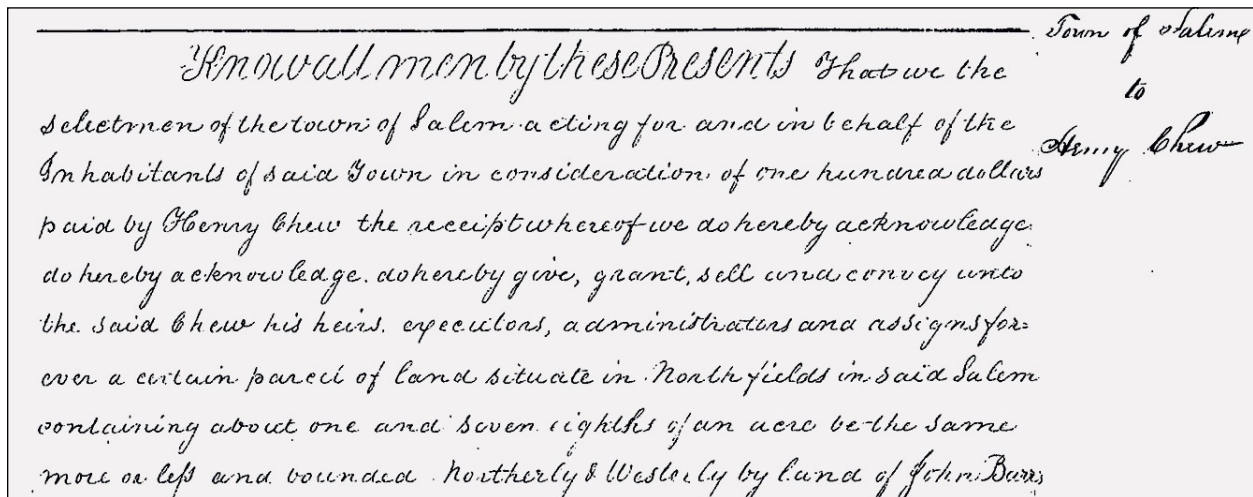 Know all men by these Presents That we the
selectmen of the town of Salem acting for and in behalf of the
Inhabitants of said Town in consideration of one hundred dollars
paid by Henry Chew the receipt whereof we do hereby acknowledge
do hereby acknowledge. do hereby give, grant, sell and convey unto
the said Chew his heirs. executors, administrators and assigns for=
ever a certain parcel of land situate in Northfields in said Salem
containing about one and seven eighths of an acre be the same
more or less and bounded Northerly & Westerly by land of John Barr
Town of Salem
to
Henry Chew